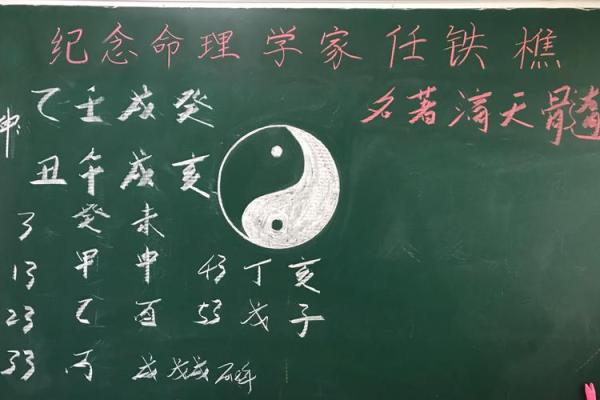 纪念命理学家任铁樵
名著滴天髓
乙壬戊癸
坤:
丑午戌亥
3 癸未
13 甲申 43 丁亥
23 乙酉 53 戊子
33 丙戌